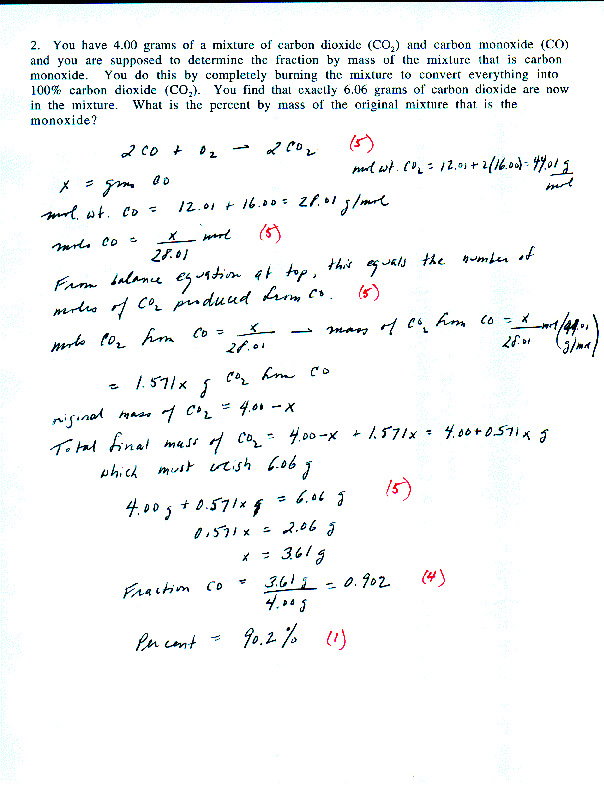 2. You have 4.00 grams of a mixture of carbon dioxide (CO₂) and carbon monoxide (CO)
and you are supposed to determine the fraction by mass of the mixture that is carbon
monoxide. You do this by completely burning the mixture to convert everything into
100% carbon dioxide (CO₂). You find that exactly 6.06 grams of carbon dioxide are now
in the mixture. What is the percent by mass of the original mixture that is the
monoxide?
2 CO + O₂ → 2 CO₂ (5)
mol wt. CO₂ = 12.01 + 2(16.00) = 44.01 g/mol
x = gms CO
mol. wt. CO = 12.01 + 16.00 = 28.01 g/mol
mols CO = x/28.01 mol (5)
From balance equation at top, this equals the number of
moles of CO₂ produced from CO. (5)
mols CO₂ from CO = x/28.01 → mass of CO₂ from CO = x/28.01 mol (44.01 g/mol)
= 1.571x g CO₂ from CO
riginal mass of CO₂ = 4.00 - x
Total final mass of CO₂ = 4.00-x + 1.571x = 4.00+0.571x g
which must weigh 6.06 g
4.00 g + 0.571x g = 6.06 g (5)
0.571x = 2.06 g
x = 3.61 g
Fraction CO = 3.61 g/4.00 g = 0.902 (4)
Percent = 90.2% (1)